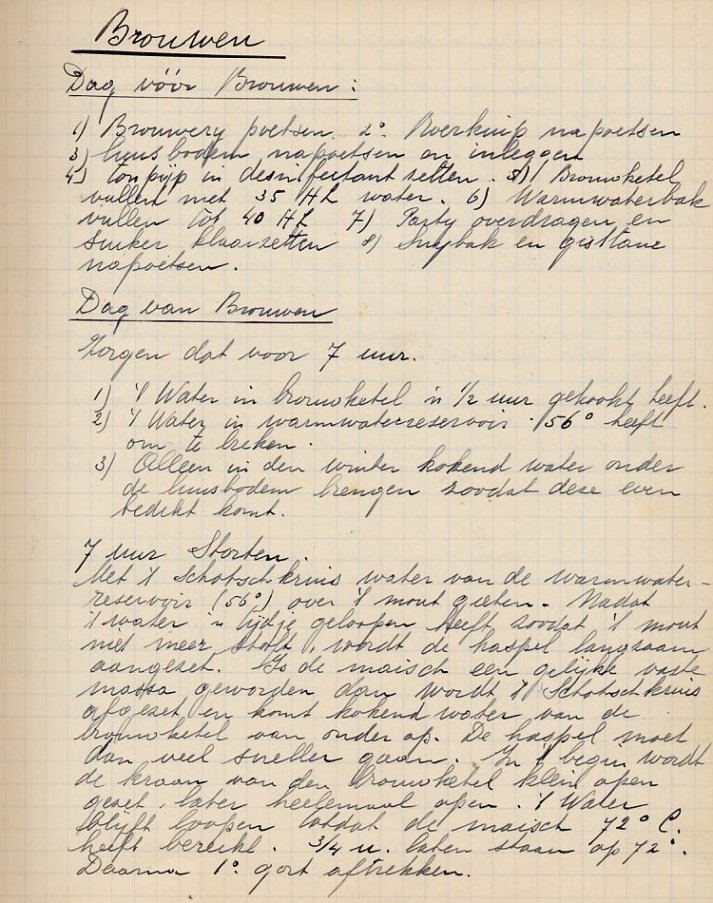 Brouwen
Dag vóór Brouwen:
1) Brouwery poetsen. 2°. Roerkuip napoetsen
3) luusbodem napoetsen en inleggen
4) tonpyp in desinfectant zetten. 5) Brouwketel
vullen met 35 HL water. 6) Warmwaterbak
vullen tot 40 HL 7) Party overdragen en
suiker klaarzetten 8) Snybak en
napoetsen.
Dag van Brouwen
Zorgen dat voor 7 uur.
1) 't Water in brouwketel in 1/2 uur gekookt heeft.
2) 't Water in warmwaterreservoir 56° heeft
om te breken.
3) Alleen in den winter kokend water onder
de luusbodem brengen zoodat deze even
bedekt komt.
7 uur Storten.
Met 't Schotsch kruis water van de warmwater-
reservoir (56°) over 't mout gieten. Nadat
't water 'n tijdje geloopen heeft zoodat 't mout
niet meer stoft, wordt de haspel langzaam
aangezet. Is de maisch een gelijke vaste
massa geworden dan wordt 't Schotsch kruis
afgezet en komt kokend water van de
brouwketel van onder op. De haspel moet
dan veel sneller gaan. In 't begin wordt
de kraan van den brouwketel klein open
gezet, later heelemaal open. 't Water
blijft loopen totdat de maisch 72° C.
heeft bereikt. 3/4 u. laten staan op 72°.
Daarna 1° gort aftrekken.